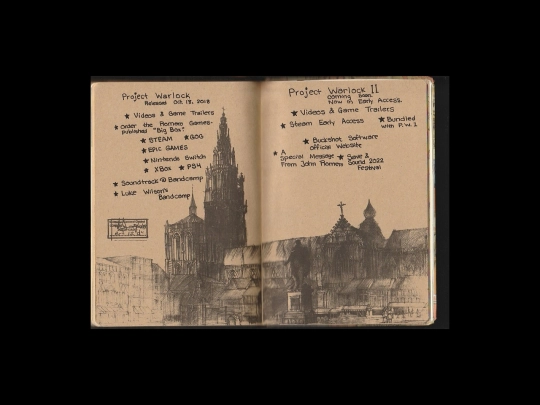 Project Warlock
Released Oct 18, 2018
★ Videos & Game Trailers
★ Order the Romero Games-
Published "Big Box!"
★ STEAM ★ GOG
★ EPIC GAMES
★ Nintendo Switch
★ XBox ★ PS4
★ Soundtrack @ Bandcamp
★ Luke Wilson's
Bandcamp
Project Warlock II
Coming Soon.
Now in Early Access.
★ Videos & Game Trailers
★ Steam Early Access
★ Bundled
with P.W. 1
★ Buckshot Software
Official Website
★ A
Special Message
From John Romero
★ Save &
Sound 2022
Festival